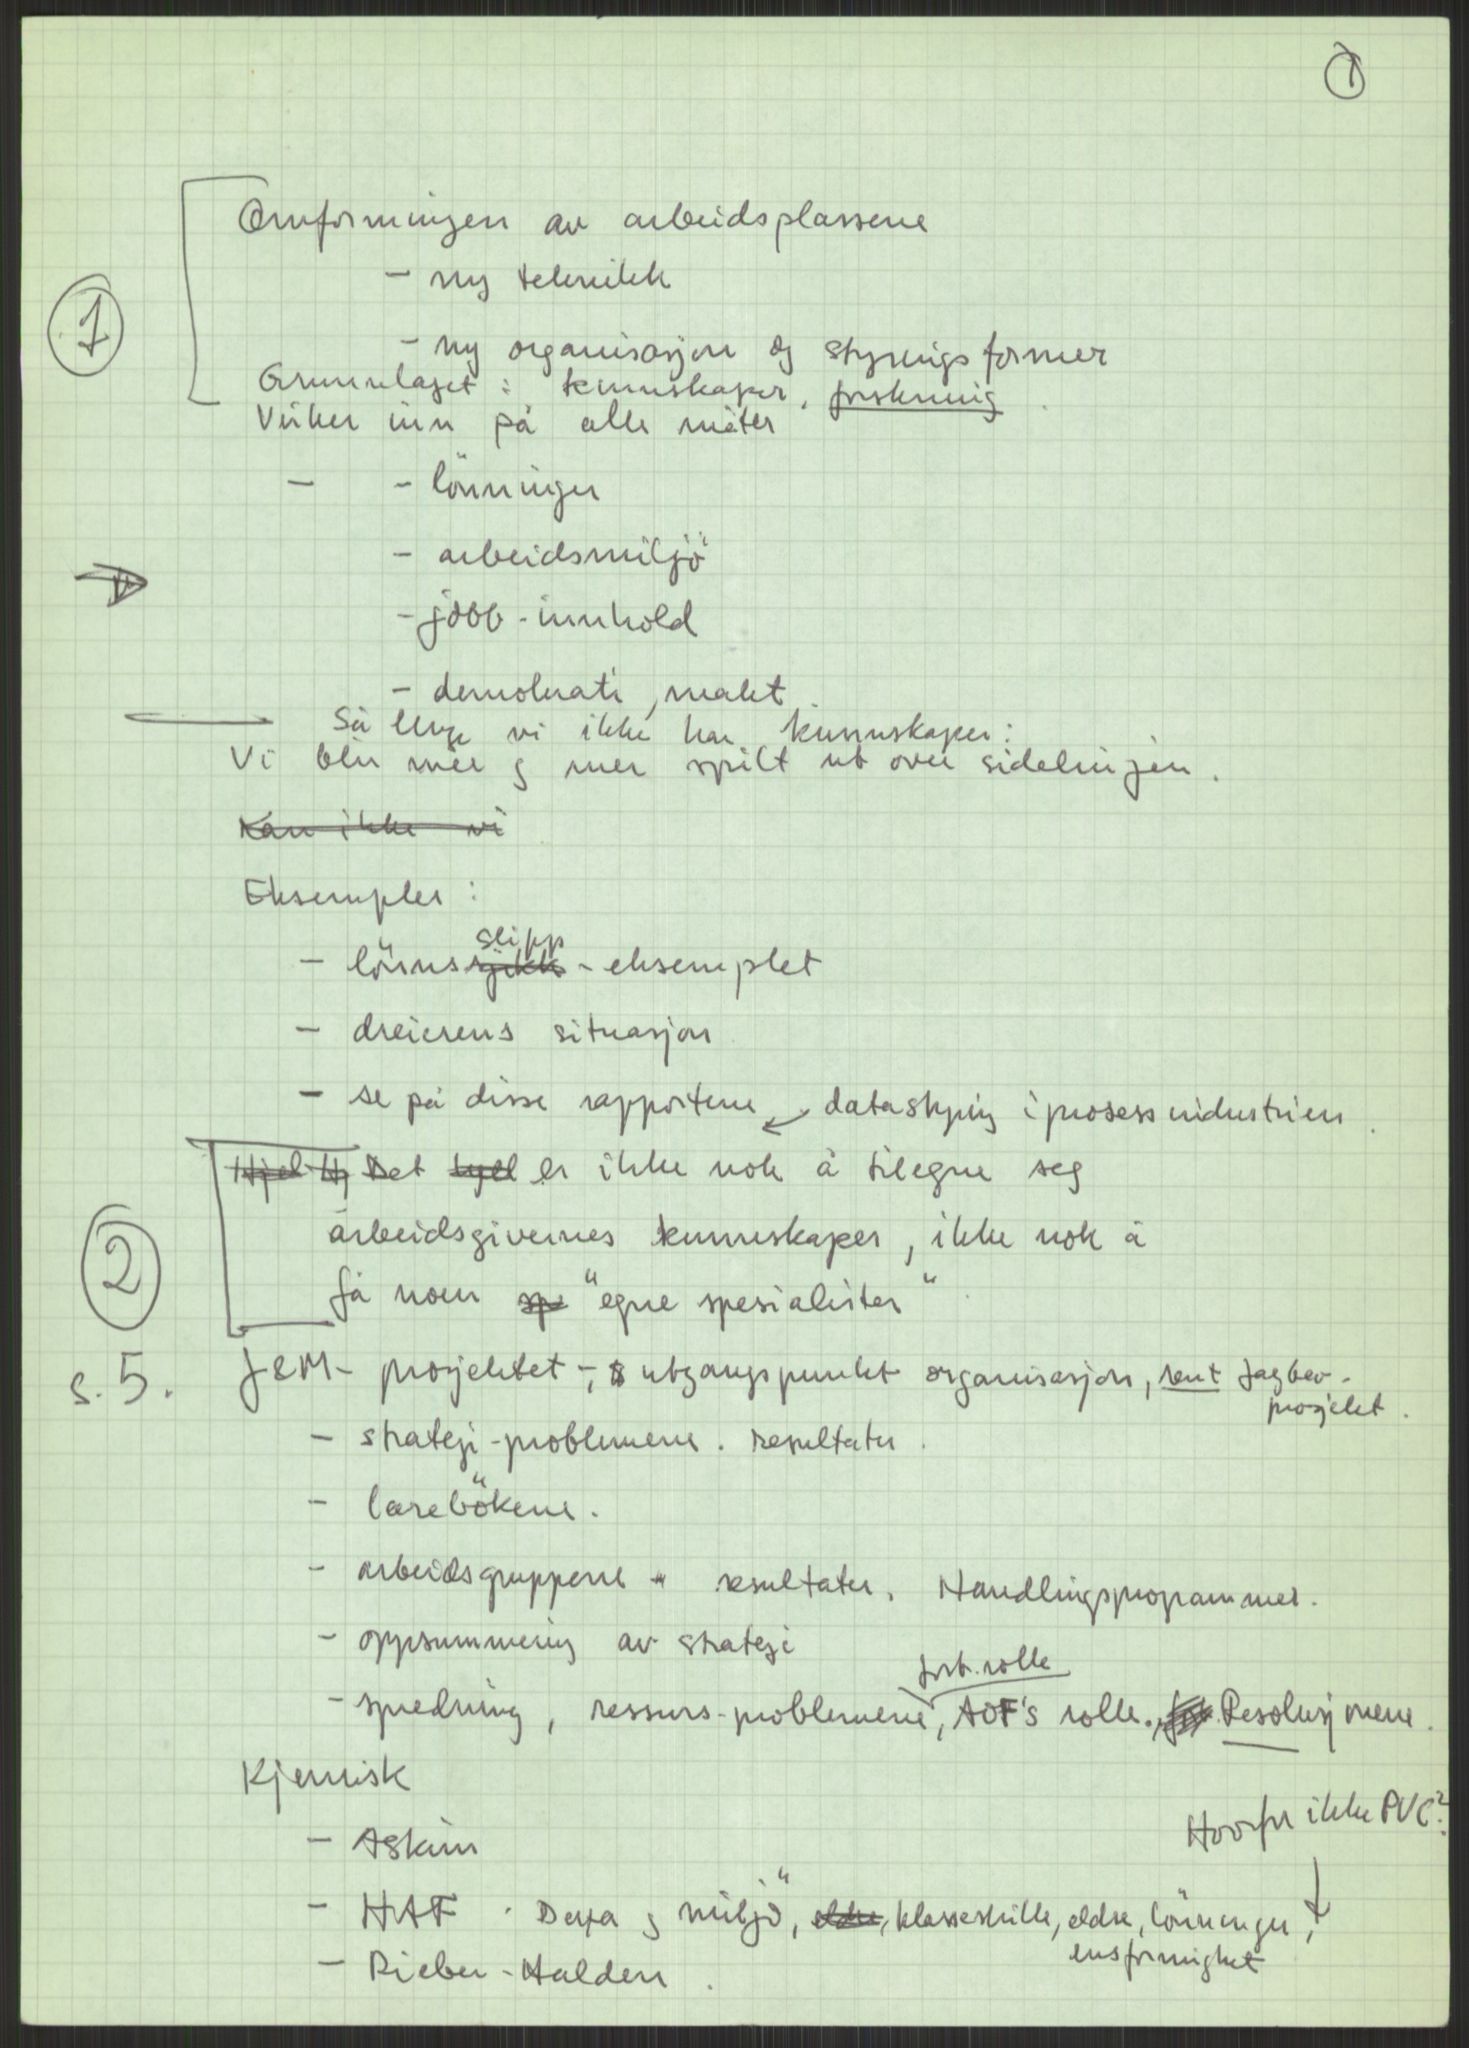 1
Omformingen av arbeidsplassene
- ny teknikk
1
- ny organisasjon og styringsformer
Grunnlaget : kunnskaper, forskning.
Virker inn på alle måter
- - lönninger
- arbeidsmiljö
- jobb-innhold
- demokrati, makt
Så lenge vi ikke har kunnskaper:
Vi blir mer og mer spilt ut over sidelinjen.
Kan ikke vi
Eksempler :
slipp
- lönnssjekk-eksemplet
- dreierens situasjon
- se på disse rapportene ↙ datastyring i prosessindustrien.
Hjel Hj Det hjel er ikke nok å tilegne seg
arbeidsgivernes kunnskaper, ikke nok å
2
få noen sp "egne spesialister".
s. 5. J&M - prosjektet -, utgangspunkt organisasjon, rent fagbev-
prosjekt.
- strategi-problemene. resultater.
- lærebökene.
- arbeidsgruppene - resultater. Handlingsprogrammer.
- oppsummering av strategi
forb. rolle
- spredning, ressurs-problemene, AOF's rolle., Resolusjonene.
Kjemisk
Hvorfor ikke PVC?
- Askim
- HAF . Dexa og miljö, eldre, klasseskille, eldre, lönninger,
ensformighet
- Rieber-Halden.